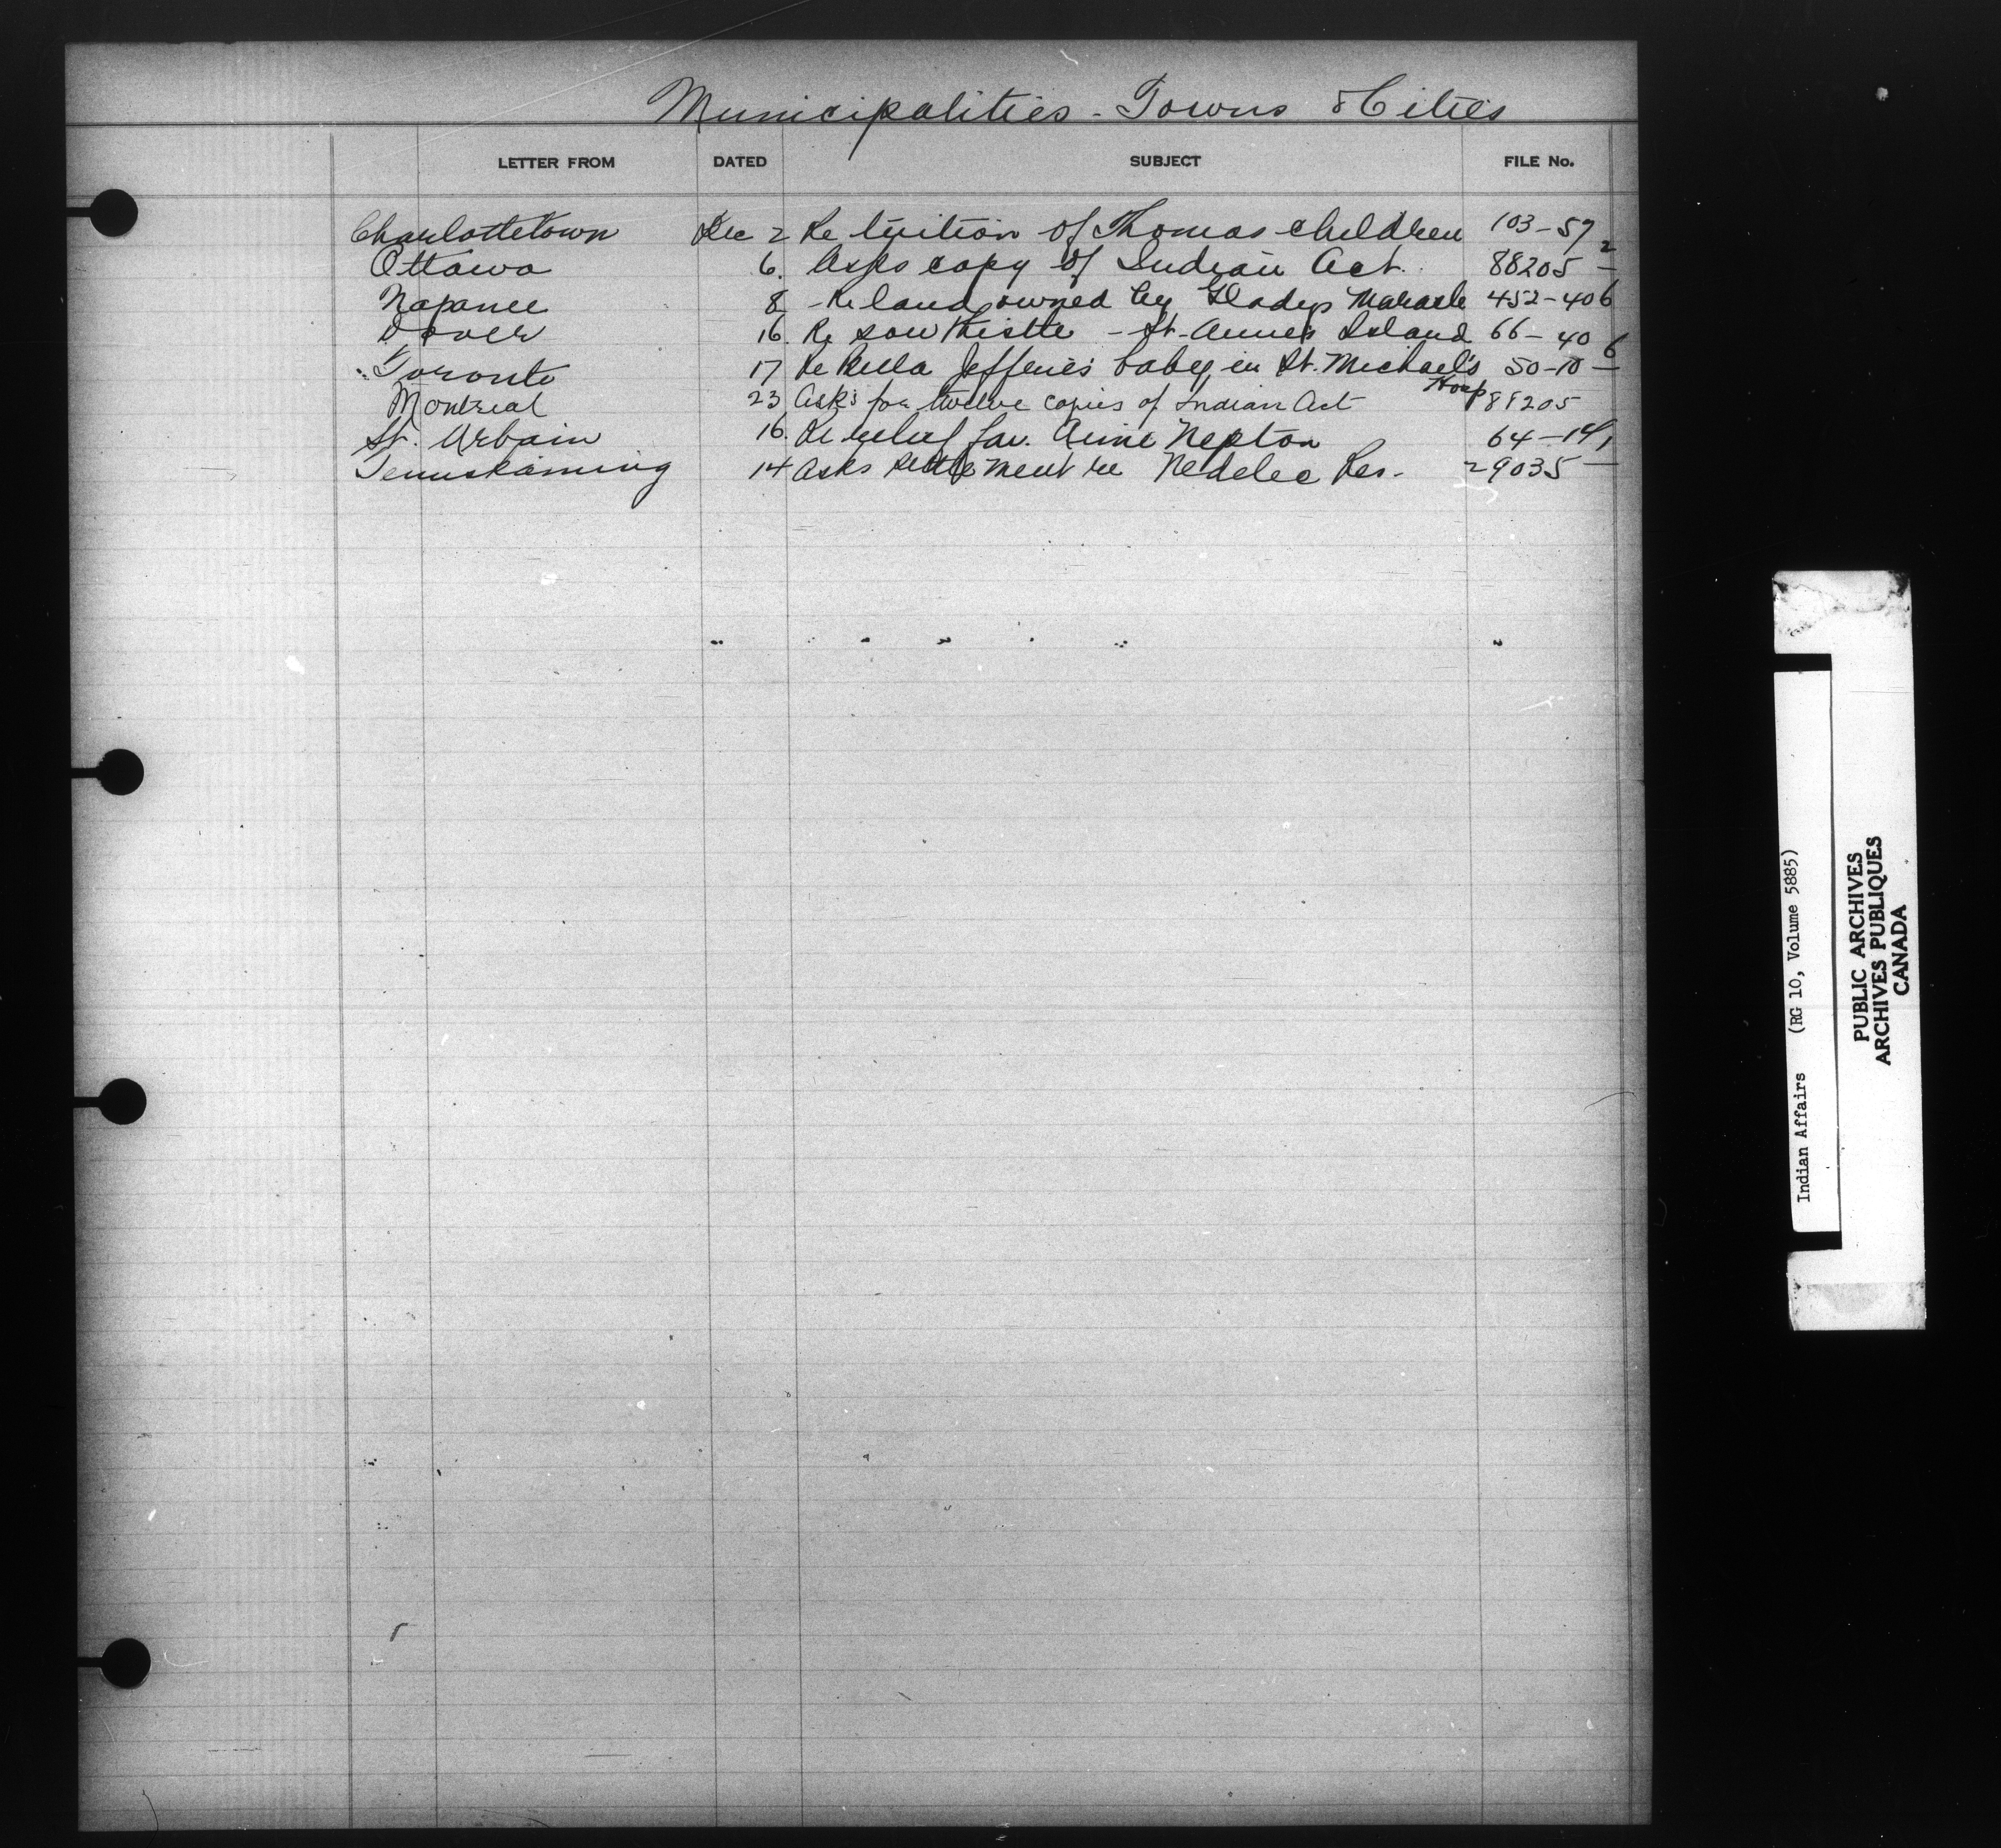 Municipalities - Towns & Cities
LETTER FROM DATED SUBJECT FILE No.
Charlottetown Dec 2 Re tuition of Thomas children 103-57 2
Ottawa 6. Asks copy of Indian Act. 88205 -
Napanee 8 - Re land owned by Gladys Maracle 452-406
Dover 16. Re sow thistle - St. Anne's Island 66-40 6
Toronto 17 Re Jefferies baby in St. Michael's Hosp 50-10 -
Montreal 23 Asks for twelve copies of Indian Act 88205
St. Urbain 16. Re relief fav. Aime Nepton 64-14/1
Temiskaming 14 Asks settlement re Nedelec Res. 29035 -
Indian Affairs (RG 10, Volume 5885)
PUBLIC ARCHIVES
ARCHIVES PUBLIQUES
CANADA